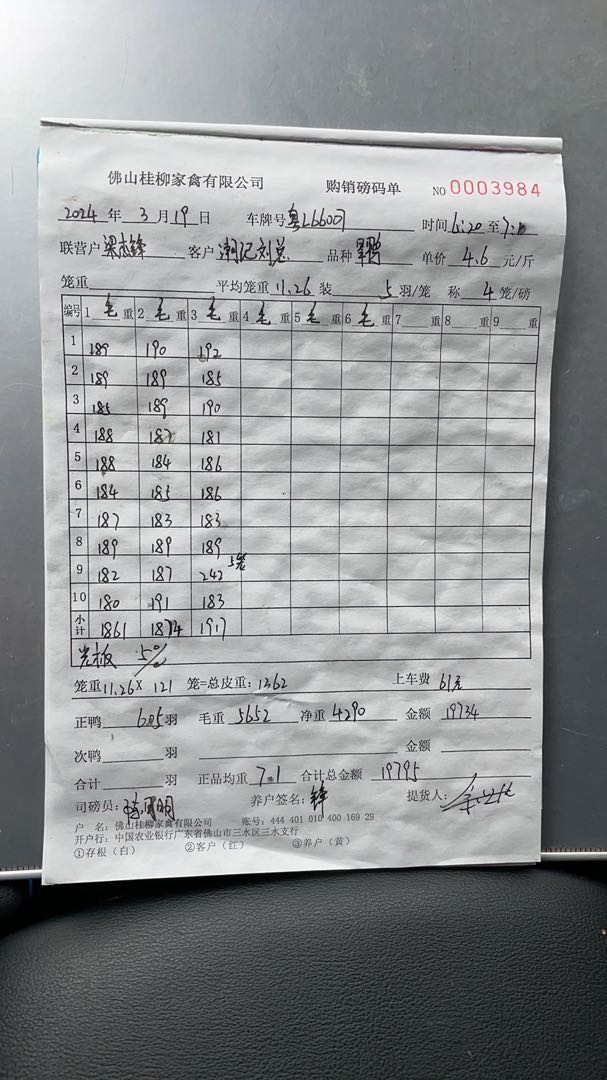 佛山桂柳家禽有限公司 购销磅码单 NO 0003984
2024 年 3 月 19 日 车牌号 时间 6:20 至 7:10
联营户 梁志锋 客户 潮记刘总 品种 单价 4.6 元/斤
笼重 平均笼重 11.26 装 5 羽/笼 称 4 笼/磅
编号 1 毛 重 2 毛 重 3 毛 重 4 毛 重 5 毛 重 6 毛 重 7 重 8 重 9 重
1 189 190 192
2 189 189 185
3 185 189 190
4 188 187 181
5 188 184 186
6 184 185 186
7 187 183 183
8 189 189 189
9 182 187 242 5笼
10 180 191 183
小计 1861 1874 1917
光板 5%
笼重 11.26 X 121 笼=总皮重: 1362 上车费 61元
正鸭 605 羽 毛重 5652 净重 4290 金额 19734
次鸭 羽 金额
合计 羽 正品均重 7.1 合计总金额 19795
司磅员: 养户签名: 锋 提货人:
户 名: 佛山桂柳家禽有限公司 账号: 444 401 010 400 169 29
开户行: 中国农业银行广东省佛山市三水区三水支行
①存根（白） ②客户（红） ③养户（黄）